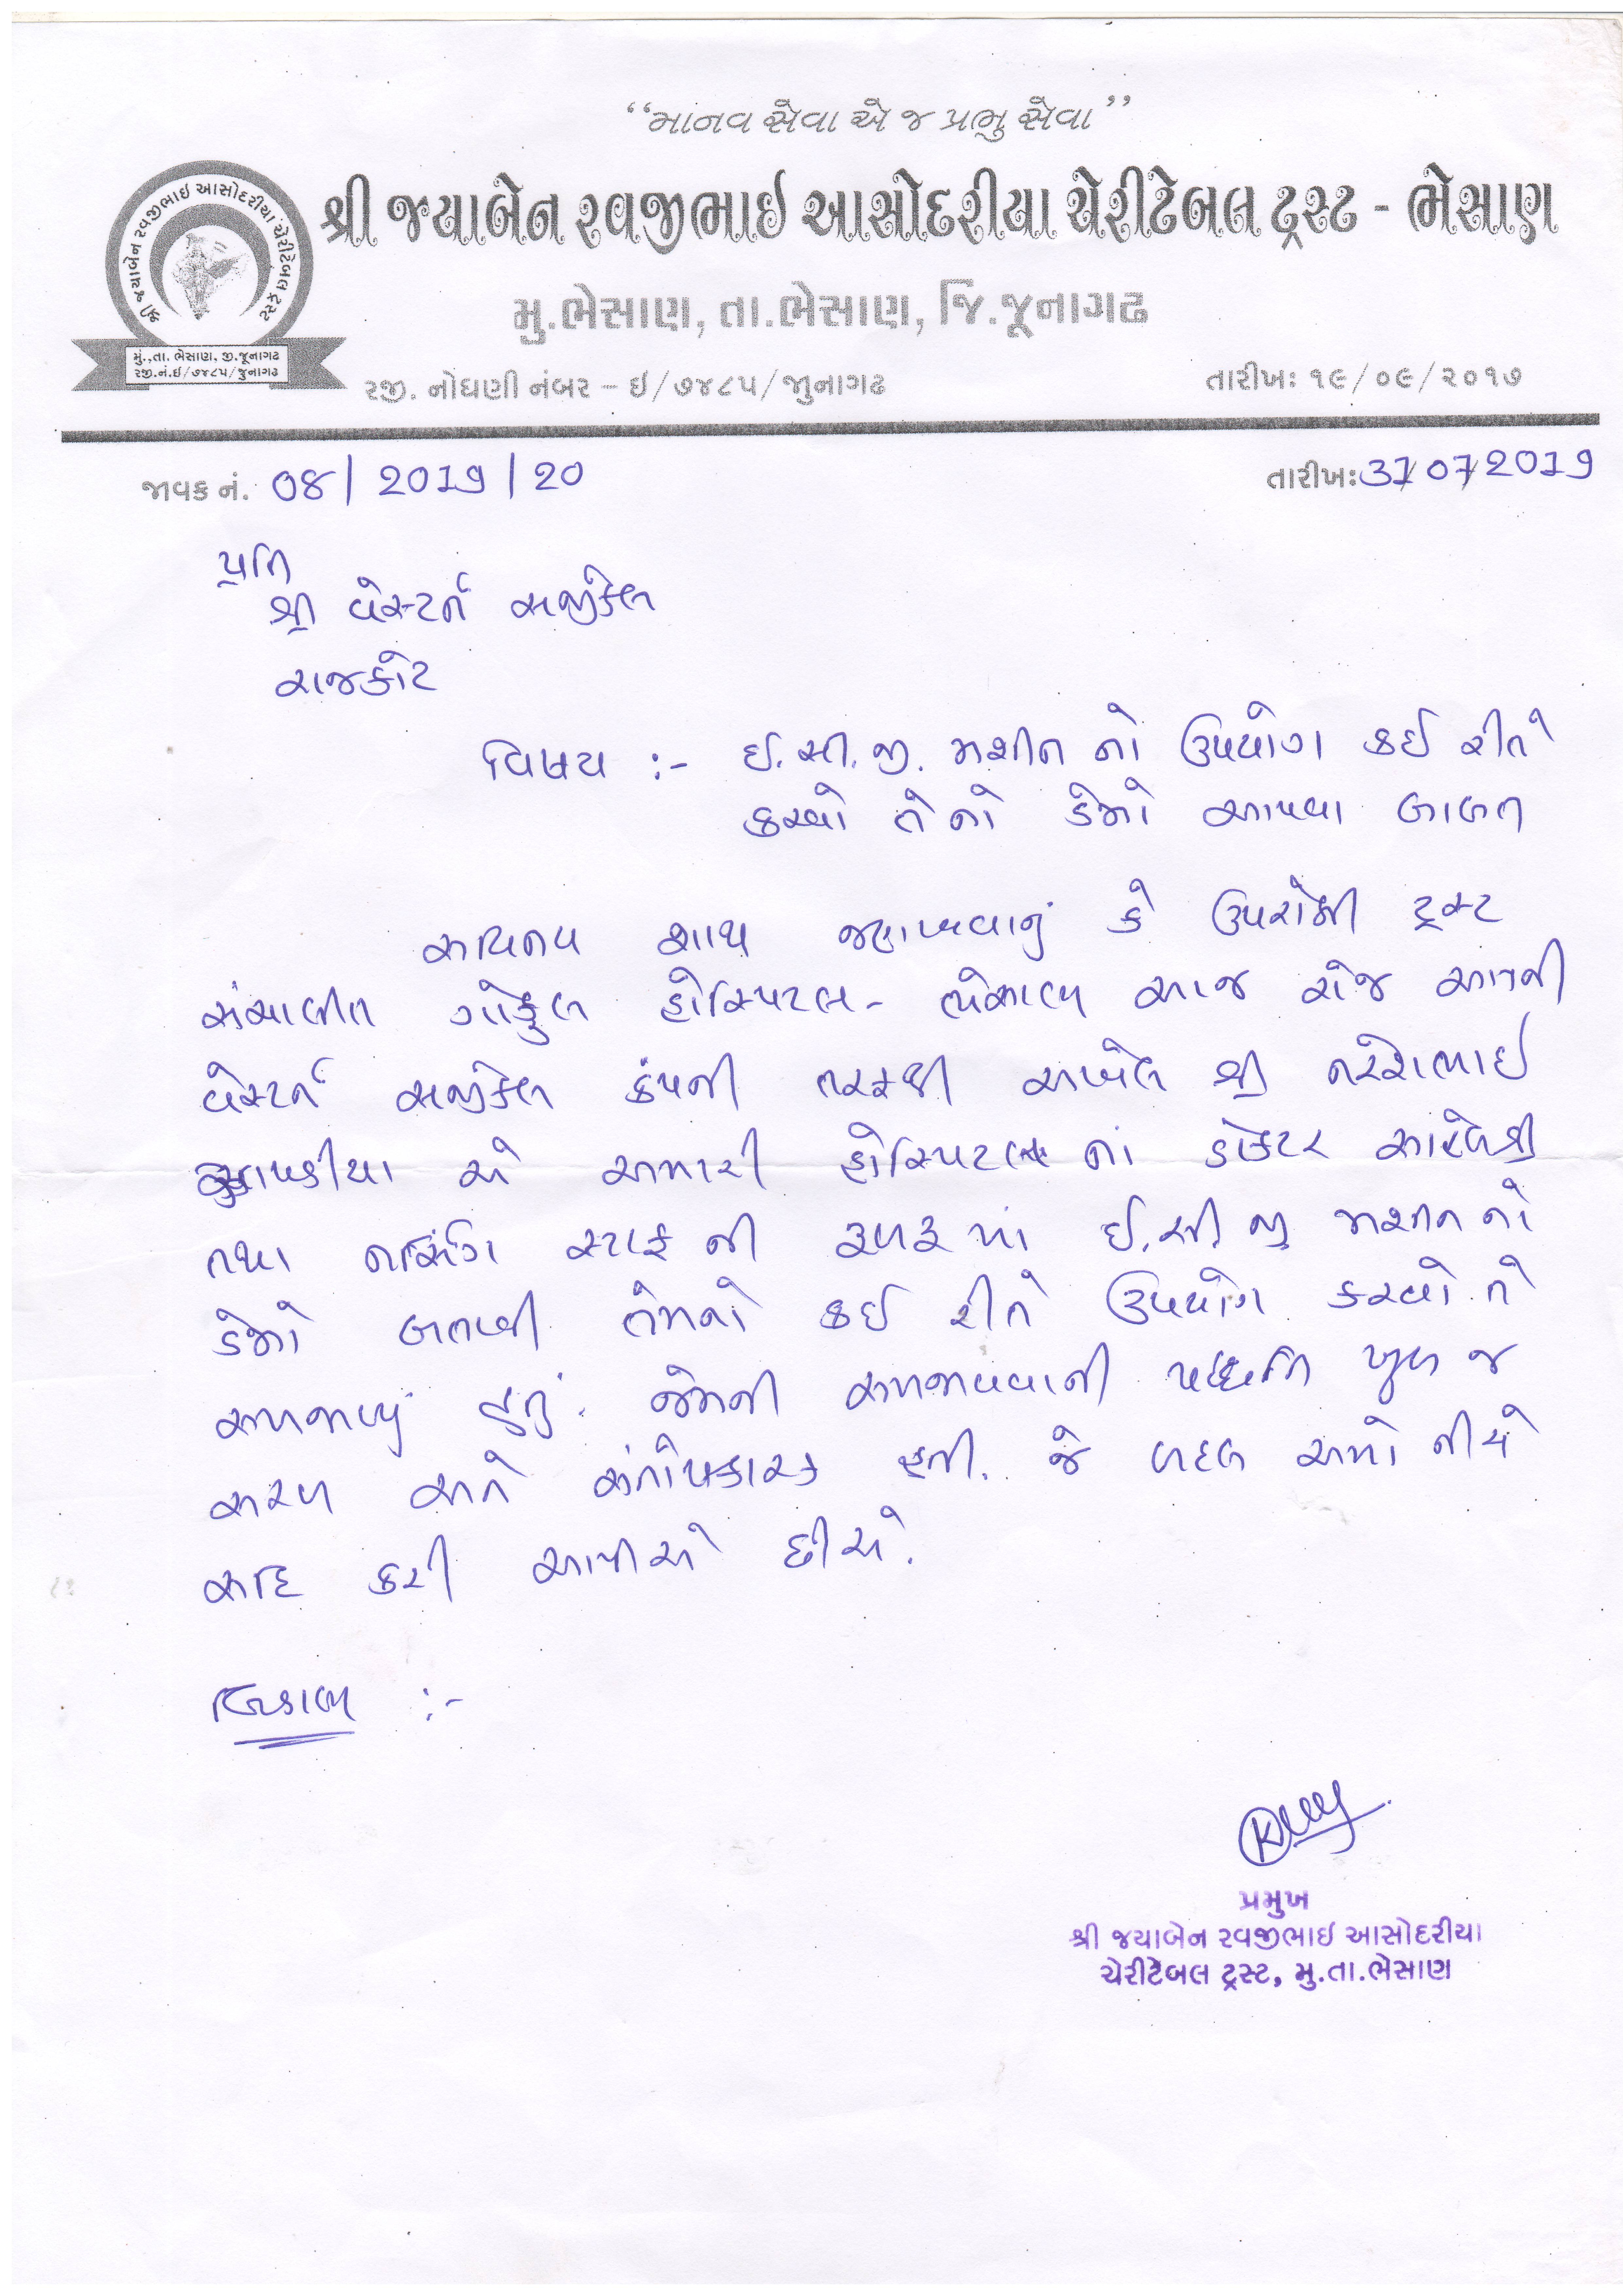 “માનવ સેવા એ જ પ્રભુ સેવા”
શ્રી જયાબેન રવજીભાઈ આસોદરીયા ચેરીટેબલ ટ્રસ્ટ - ભેસાણ
શ્રી જયાબેન રવજીભાઈ આસોદરીયા ચેરીટેબલ ટ્રસ્ટ
મું.,તા. ભેસાણ, જી.જૂનાગઢ
રજી.નં.ઇ/૭૪૮૫/જુનાગઢ
મુ.ભેસાણ, તા.ભેસાણ, જિ.જૂનાગઢ
રજી. નોધણી નંબર – ઇ/૭૪૮૫/જુનાગઢ તારીખઃ ૧૯/૦૯/૨૦૧૭
જાવક નં. 08/2019/20 તારીખઃ 31/07/2019
પ્રતિ
શ્રી વેસ્ટર્ન સર્જીકલ
રાજકોટ
વિષય :- ઈ.સી.જી. મશીન નો ઉપયોગ કઈ રીતે
કરવો તે નો ડેમો આપવા બાબત
સવિનય સાથ જણાવવાનું કે ઉપરોક્ત ટ્રસ્ટ
સંચાલીત ગોકુલ હોસ્પિટલ- ભેસાણ આજ રોજ આપની
વેસ્ટર્ન સર્જીકલ કંપની તરફથી આવેલ શ્રી નરેશભાઈ
એ અમારી હોસ્પિટલ નાં ડોકટર સાહેબશ્રી
તથા નર્સિંગ સ્ટાફ ની રૂબરૂ માં ઈ.સી.જી મશીન નો
ડેમો બતાવી તેમનો કઈ રીતે ઉપયોગ કરવો તે
સમજાવ્યું હતું. જેમની સમજાવવાની પધ્ધતિ ખુબ જ
સરળ અને સંતોષકારક હતી. જે બદલ અમો નીચે
સહિ કરી આપીએ છીએ.
:-
પ્રમુખ
શ્રી જયાબેન રવજીભાઈ આસોદરીયા
ચેરીટેબલ ટ્રસ્ટ, મુ.તા.ભેસાણ